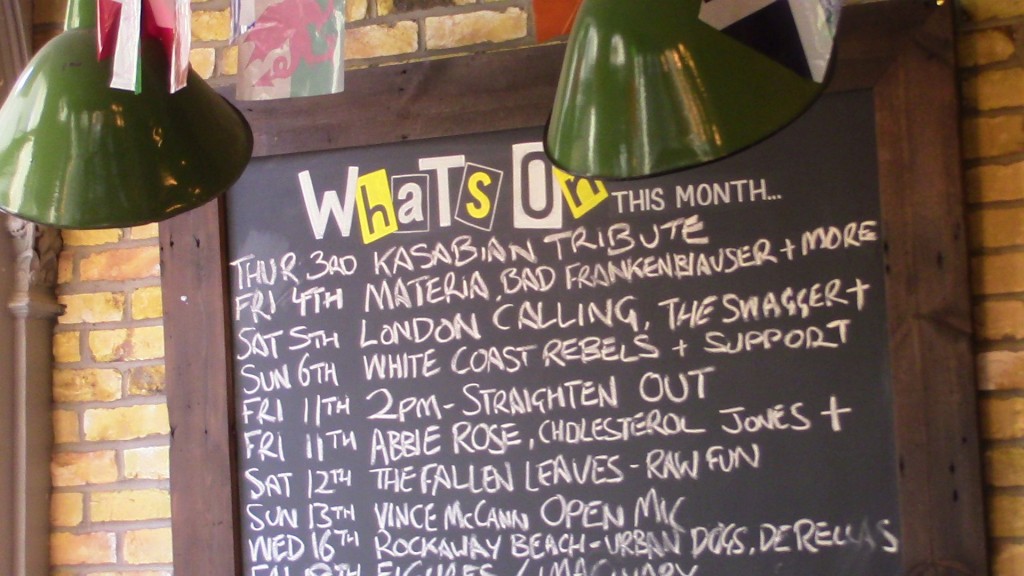 WhaTs On THIS MONTH...
THUR 3RD KASABIAN TRIBUTE
FRI 4TH MATERIA, BAD FRANKENBIAUSER + MORE
SAT 5TH LONDON CALLING, THE SWAGGER +
SUN 6TH WHITE COAST REBELS + SUPPORT
FRI 11TH 2PM - STRAIGHTEN OUT
FRI 11TH ABBIE ROSE, CHOLESTEROL JONES +
SAT 12TH THE FALLEN LEAVES - RAW FUN
SUN 13TH VINCE McCANN OPEN MIC
WED 16TH ROCKAWAY BEACH - URBAN DOGS, DE RELLAS
FIGURES /